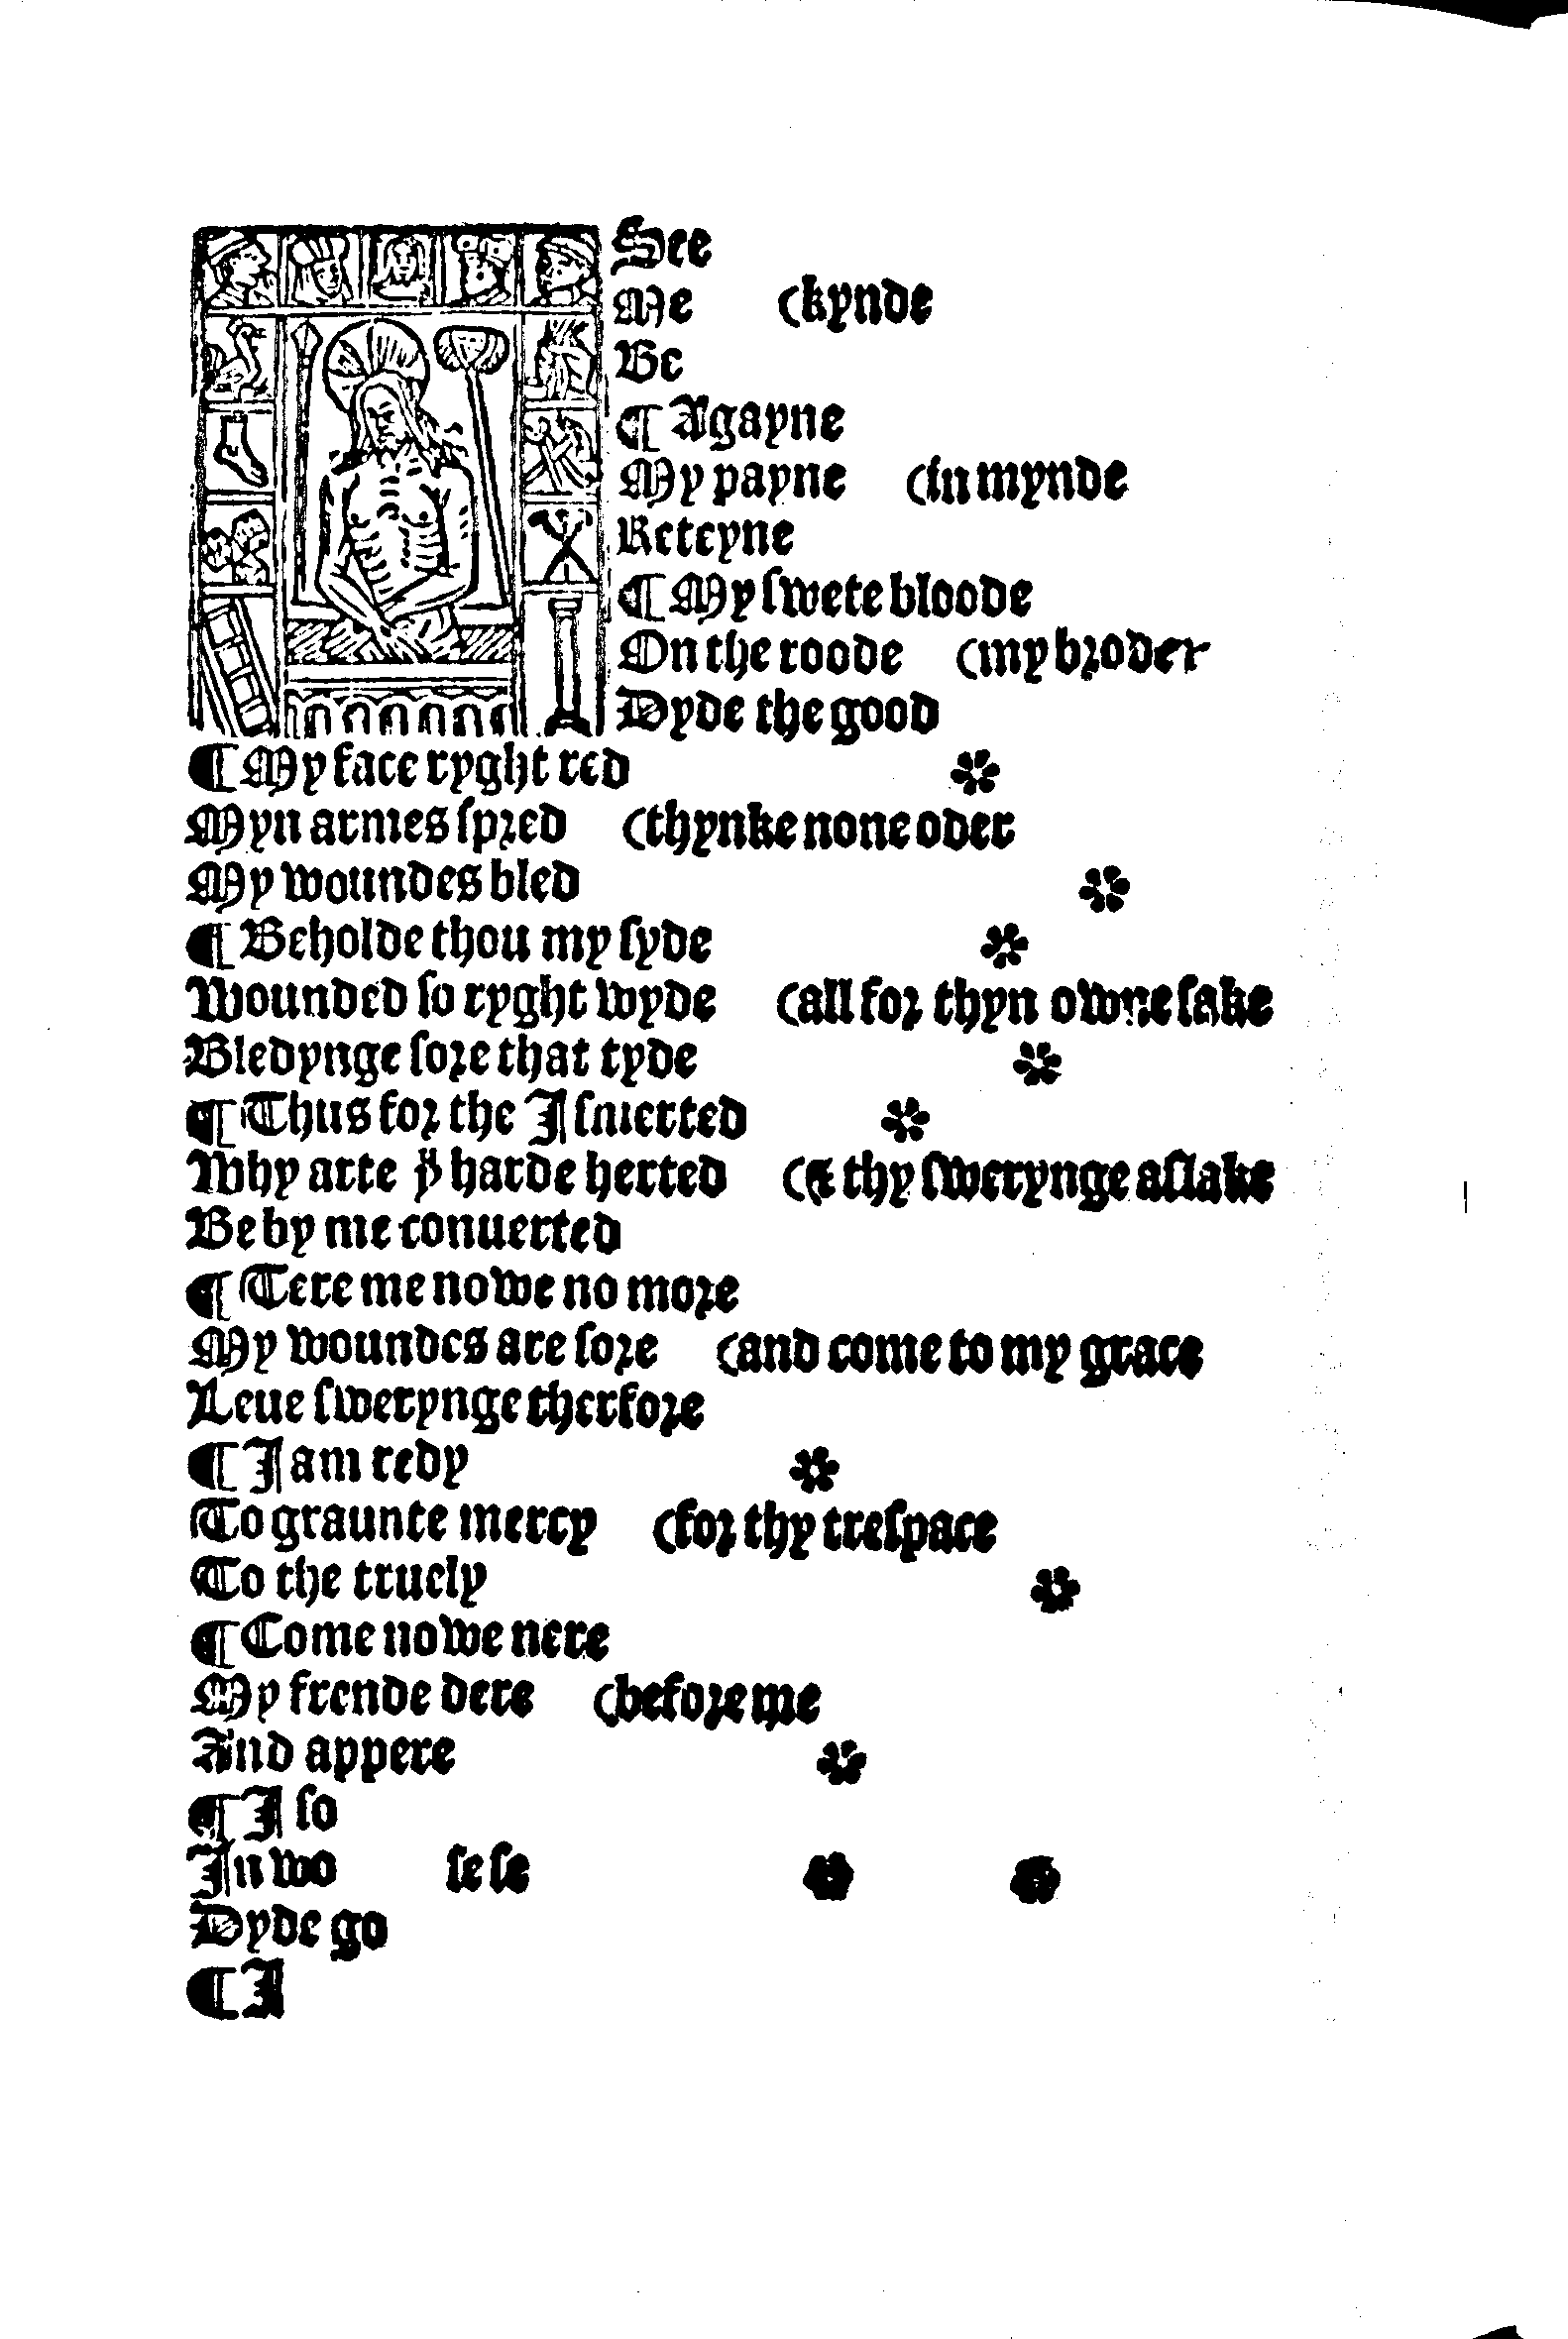 See
Me (kynde
Be
¶ Agayne
My payne (in mynde
Reteyne
¶ My ſwete bloode
On the roode (my broder
Dyde the good
¶ My face ryght red
Myn armes ſpred (thynke none oder
My woundes bled
¶ Beholde thou my ſyde
Wounded ſo ryght wyde (all for thyn owne ſake
Bledynge ſore that tyde
¶ Thus for the I ſmerted
Why arte yͧ harde herted (& thy ſwerynge aſlake
Be by me conuerted
¶ Tere me nowe no more
My woundes are ſore (and come to my grace
Leue ſwerynge therfore
¶ I am redy
To graunte mercy (for thy treſpace
To the truely
¶ Come nowe nere
My frende dere (before me
And appere
¶ I ſo
In wo ſe ſe
Dyde go
¶ I